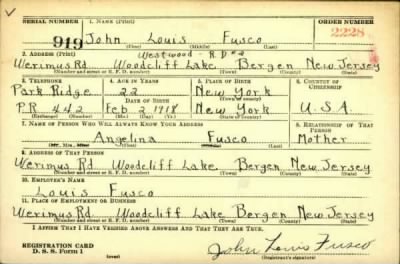 SERIAL NUMBER 1. NAME (Print) ORDER NUMBER
919 John Louis Fusco 2228
(First) (Middle) (Last)
2. ADDRESS (Print) Westwood - R.D #2
Werimus Rd Woodcliff Lake Bergen New Jersey
(Number and street or R. F. D. number) (Town) (County) (State)
3. TELEPHONE 4. AGE IN YEARS 5. PLACE OF BIRTH 6. COUNTRY OF CITIZENSHIP
Park Ridge 22 New York
DATE OF BIRTH
P.R 442 Feb 2 1918 New York U.S.A.
(Exchange) (Number) (Mo.) (Day) (Yr.) (State or country)
7. NAME OF PERSON WHO WILL ALWAYS KNOW YOUR ADDRESS 8. RELATIONSHIP OF THAT PERSON
Angelina Fusco Mother
(Mr., Mrs., Miss) (First) (Middle) (Last)
9. ADDRESS OF THAT PERSON
Werimus Rd Woodcliff Lake Bergen New Jersey
(Number and street or R. F. D. number) (Town) (County) (State)
10. EMPLOYER'S NAME
Louis Fusco
11. PLACE OF EMPLOYMENT OR BUSINESS
Werimus Rd Woodcliff Lake Bergen New Jersey
(Number and street or R. F. D. number) (Town) (County) (State)
I AFFIRM THAT I HAVE VERIFIED ABOVE ANSWERS AND THAT THEY ARE TRUE.
REGISTRATION CARD
D. S. S. Form 1 John Louis Fusco
(Registrant's signature)